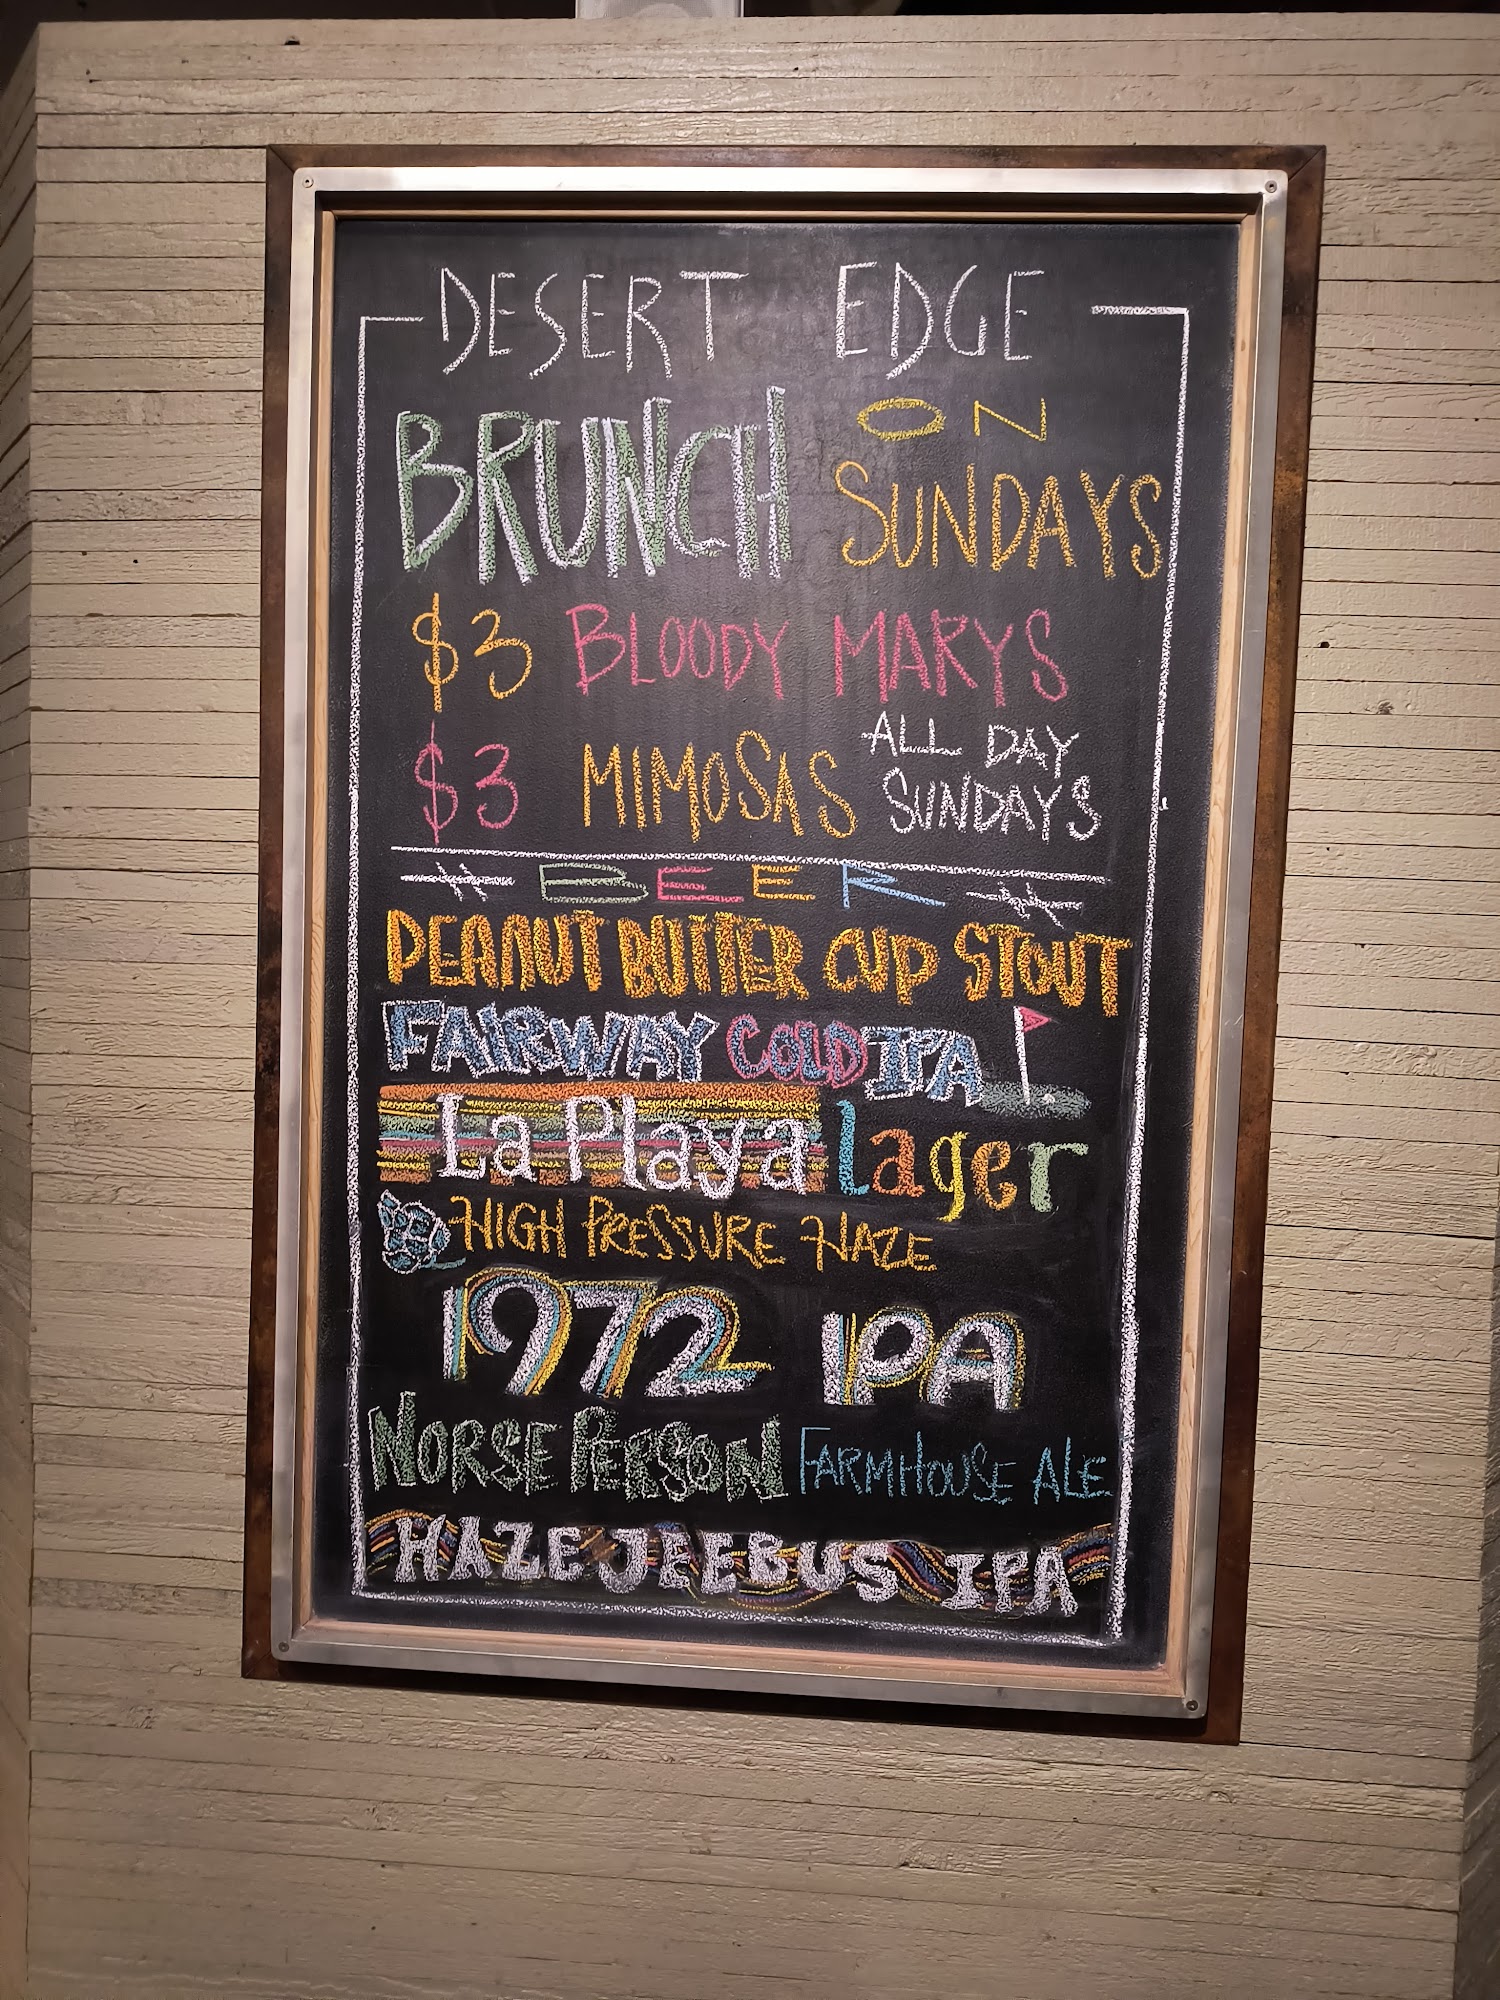 DESERT EDGE
BRUNCH ON SUNDAYS
$3 BLOODY MARYS
$3 MIMOSAS ALL DAY SUNDAYS
BEER
PEANUT BUTTER CUP STOUT
FAIRWAY COLD IPA
La Playa Lager
HIGH PRESSURE HAZE
1972 IPA
NORSE PERSON FARMHOUSE ALE
HAZE JEEBUS IPA